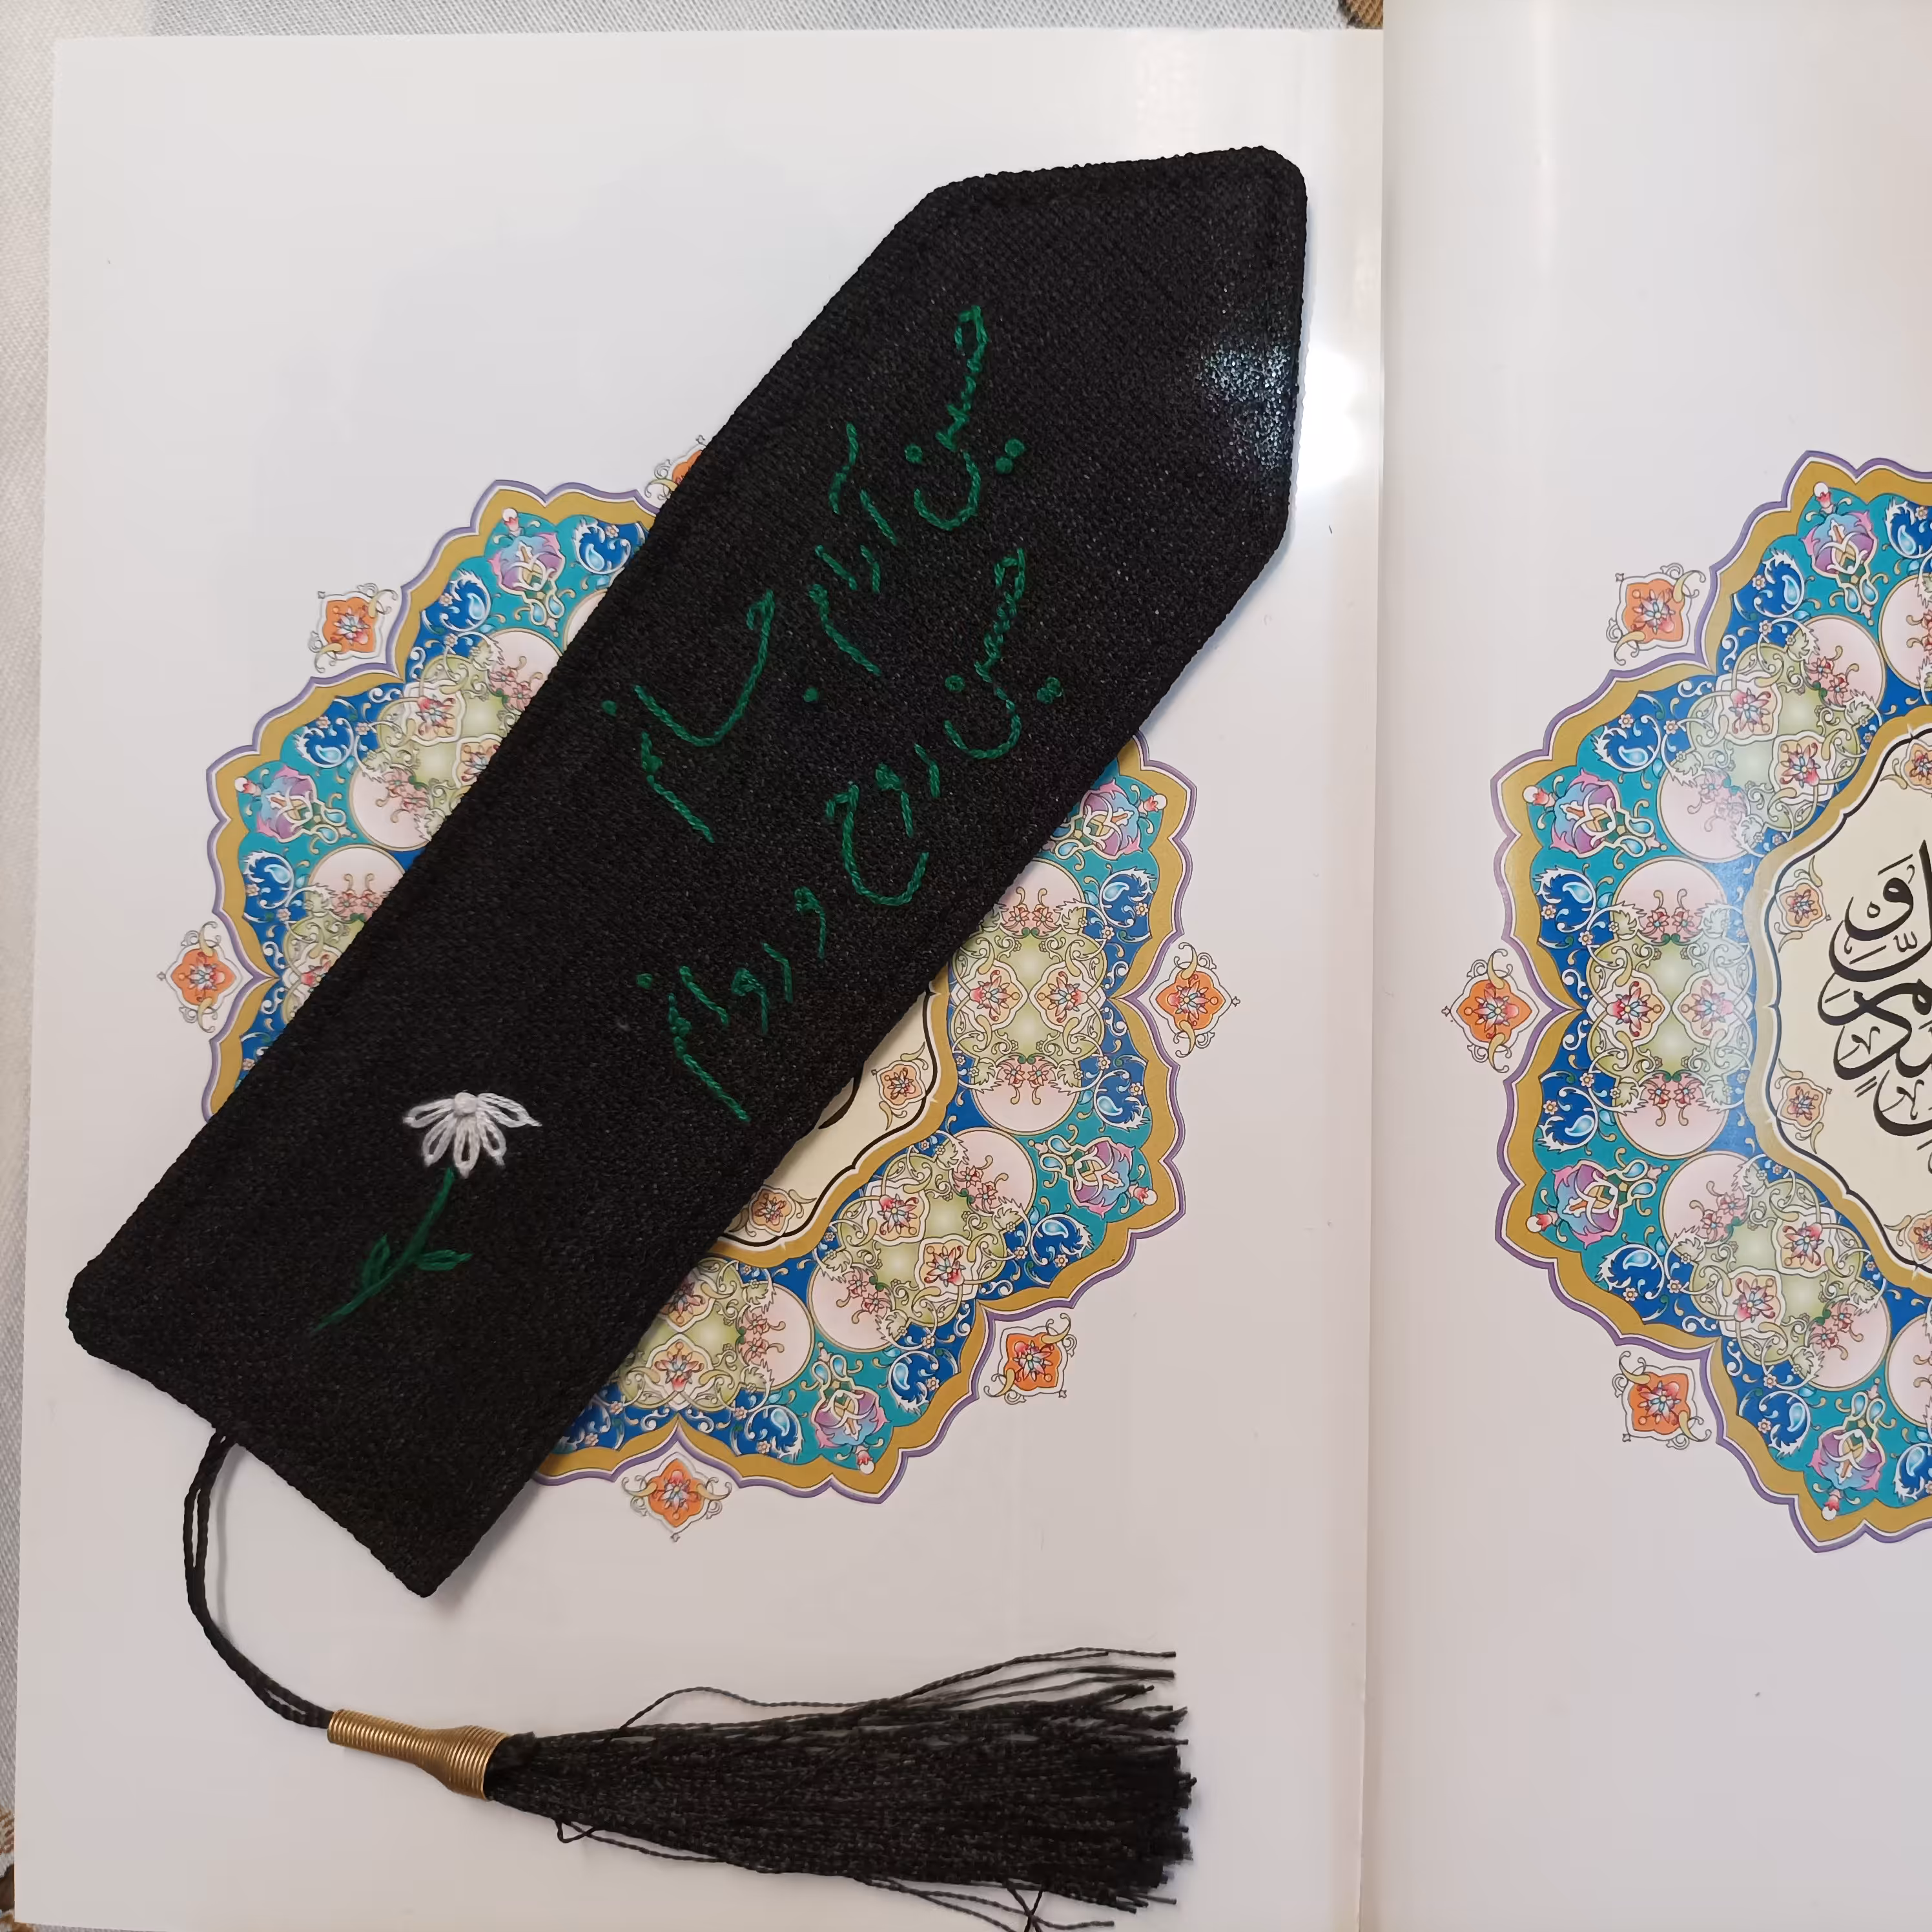 حسین آرام جانم
حسین روح و روانم